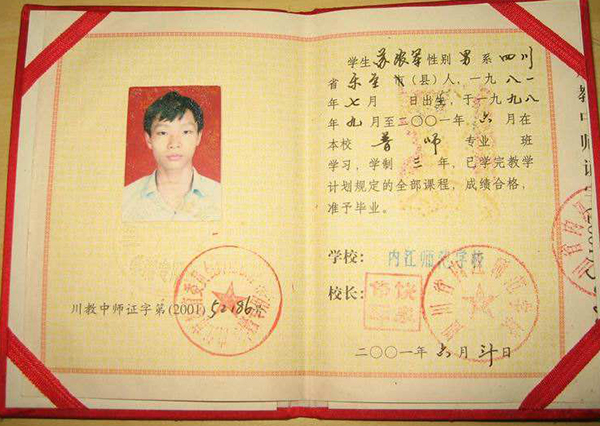 川教中师证字第(2001)52186号
学生 苏 军 性别 男 系 四川
省 乐至 市(县)人,一九八一
年 七 月 日出生,于一九九八
年 九 月至二〇〇一年 六 月在
本校 普师 专业 班
学习,学制 三 年,已学完教学
计划规定的全部课程,成绩合格,
准予毕业。
学校: 内江师范学校
校长:
二〇〇一年 六 月 日
教中师证